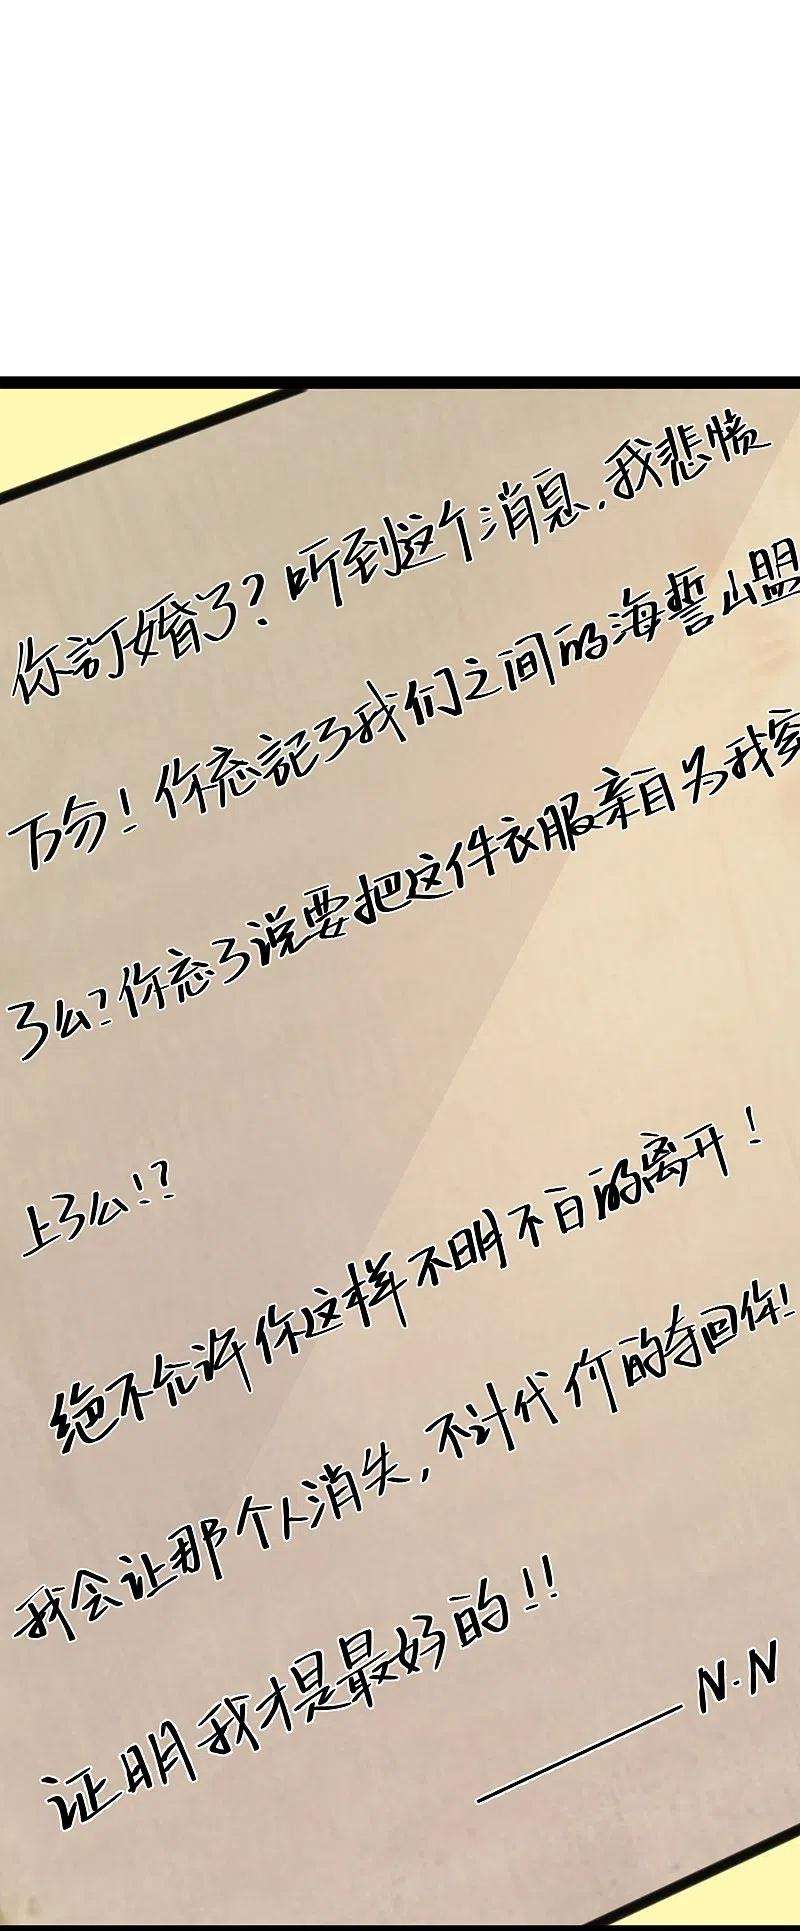 你訂婚了？听到这个消息，我悲愤
万分！你忘記了我们之间的海誓山盟
了么？你忘了说要把这件衣服亲自为我穿
上了么！？
绝不允许你这样不明不白的离开！
我会让那个人消失，不计代价的夺回你！
证明我才是最好的！！
——N.N